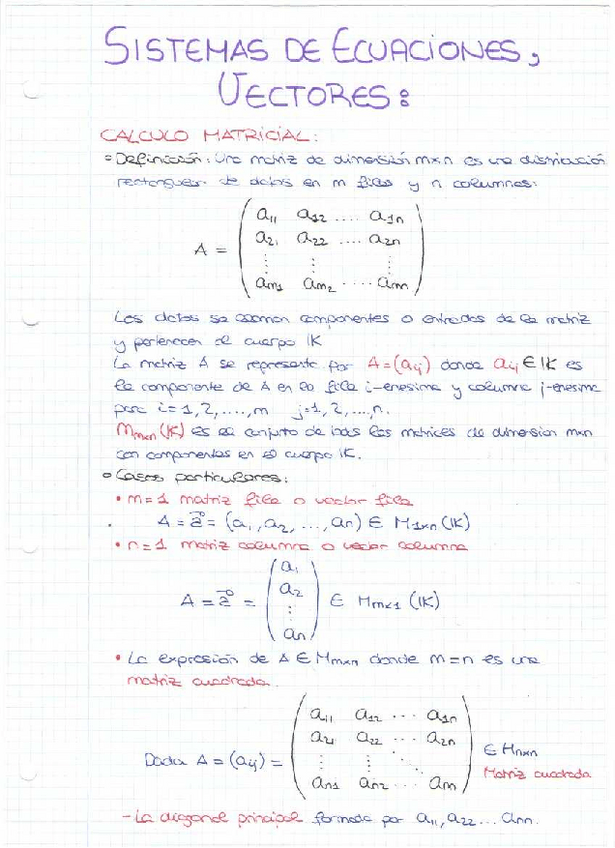 SISTEMAS DE ECUACIONES,
VECTORES:
CALCULO MATRICIAL:
Definición: Una matriz de dimensión m×n es una distribución
rectangular de datos en m filas y n columnas:
a₁₁ a₁₂ .... a₁n
a₂₁ a₂₂ .... a₂n
A =
⋮ ⋮ ⋮
am₁ am₂ ..... amn
Los datos se llaman componentes o entradas de la matriz
y pertenecen al cuerpo IK
La matriz A se representa por A=(aij) donde aij ∈ IK es
la componente de A en la fila i-enesima y columna j-enesima
para i=1,2,....,m j=1,2,...,n.
Mm×n(IK) es el conjunto de todas las matrices de dimension m×n
con componentes en el cuerpo IK.
Casos particulares:
• m=1 matriz fila o vector fila
A = a⃗ = (a₁, a₂, ..., an) ∈ M1×n(IK)
• n=1 matriz columna o vector columna
a₁
a₂
A = a⃗ = ⋮ ∈ Mm×1 (IK)
an
• La expresión de A ∈ Mm×n donde m=n es una
matriz cuadrada.
a₁₁ a₁₂ ... a₁n
a₂₁ a₂₂ ... a₂n
∈ Mn×n
Dada A = (aij) =
⋮ ⋮ ⋱
Matriz cuadrada
an₁ an₂ ... ann
- La diagonal principal formada por a₁₁, a₂₂ ... ann.